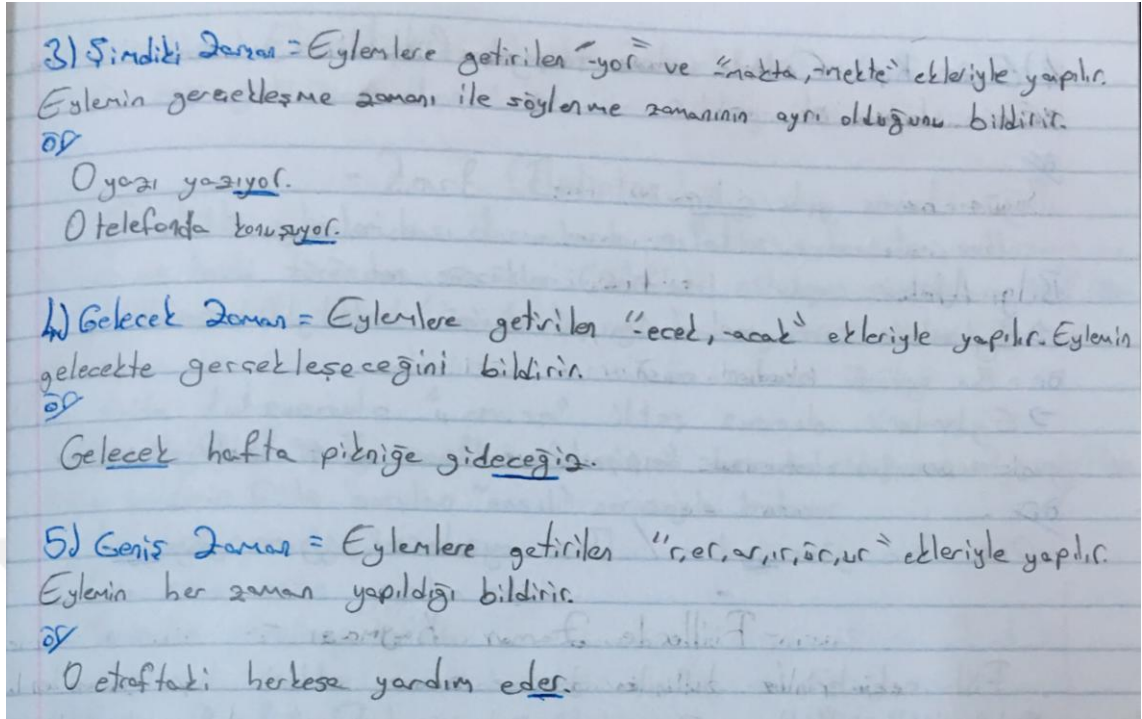 3) Şimdiki Zaman = Eylemlere getirilen "-yor" ve "-makta, -mekte" ekleriyle yapılır.
Eylemin gerçekleşme zamanı ile söylenme zamanının ayrı olduğunu bildirir.
ör
O yazı yazıyor.
O telefonda konuşuyor.
4) Gelecek Zaman = Eylemlere getirilen "-ecek, -acak" ekleriyle yapılır. Eylemin
gelecekte gerçekleşeceğini bildirir.
ör
Gelecek hafta pikniğe gideceğiz.
5) Geniş Zaman = Eylemlere getirilen "r, er, ar, ır, ür, ur" ekleriyle yapılır.
Eylemin her zaman yapıldığı bildirir.
ör
O etraftaki herkese yardım eder.